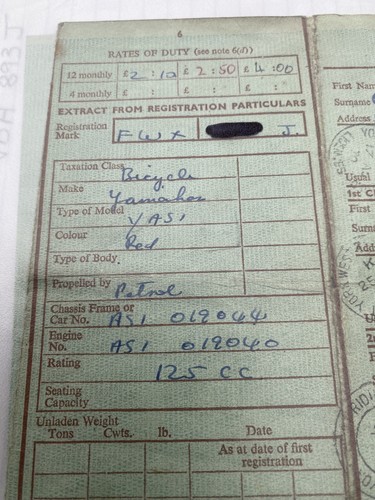 6
RATES OF DUTY (see note 6(d))
12 monthly £2 : 10 £2 : 50 £4 : 00
4 monthly £ : £ : £ :
EXTRACT FROM REGISTRATION PARTICULARS
Registration Mark FWX J.
Taxation Class Bicycle
Make Yamaha
Type of Model YAS1
Colour Red
Type of Body.
Propelled by Petrol
Chassis Frame or
Car No. AS1 019044
Engine
No. AS1 019040
Rating 125 CC
Seating
Capacity
Unladen Weight
Tons Cwts. lb. Date
As at date of first
registration
First Nam
Surname
Address
Usual
1st C
First
Surna
Add